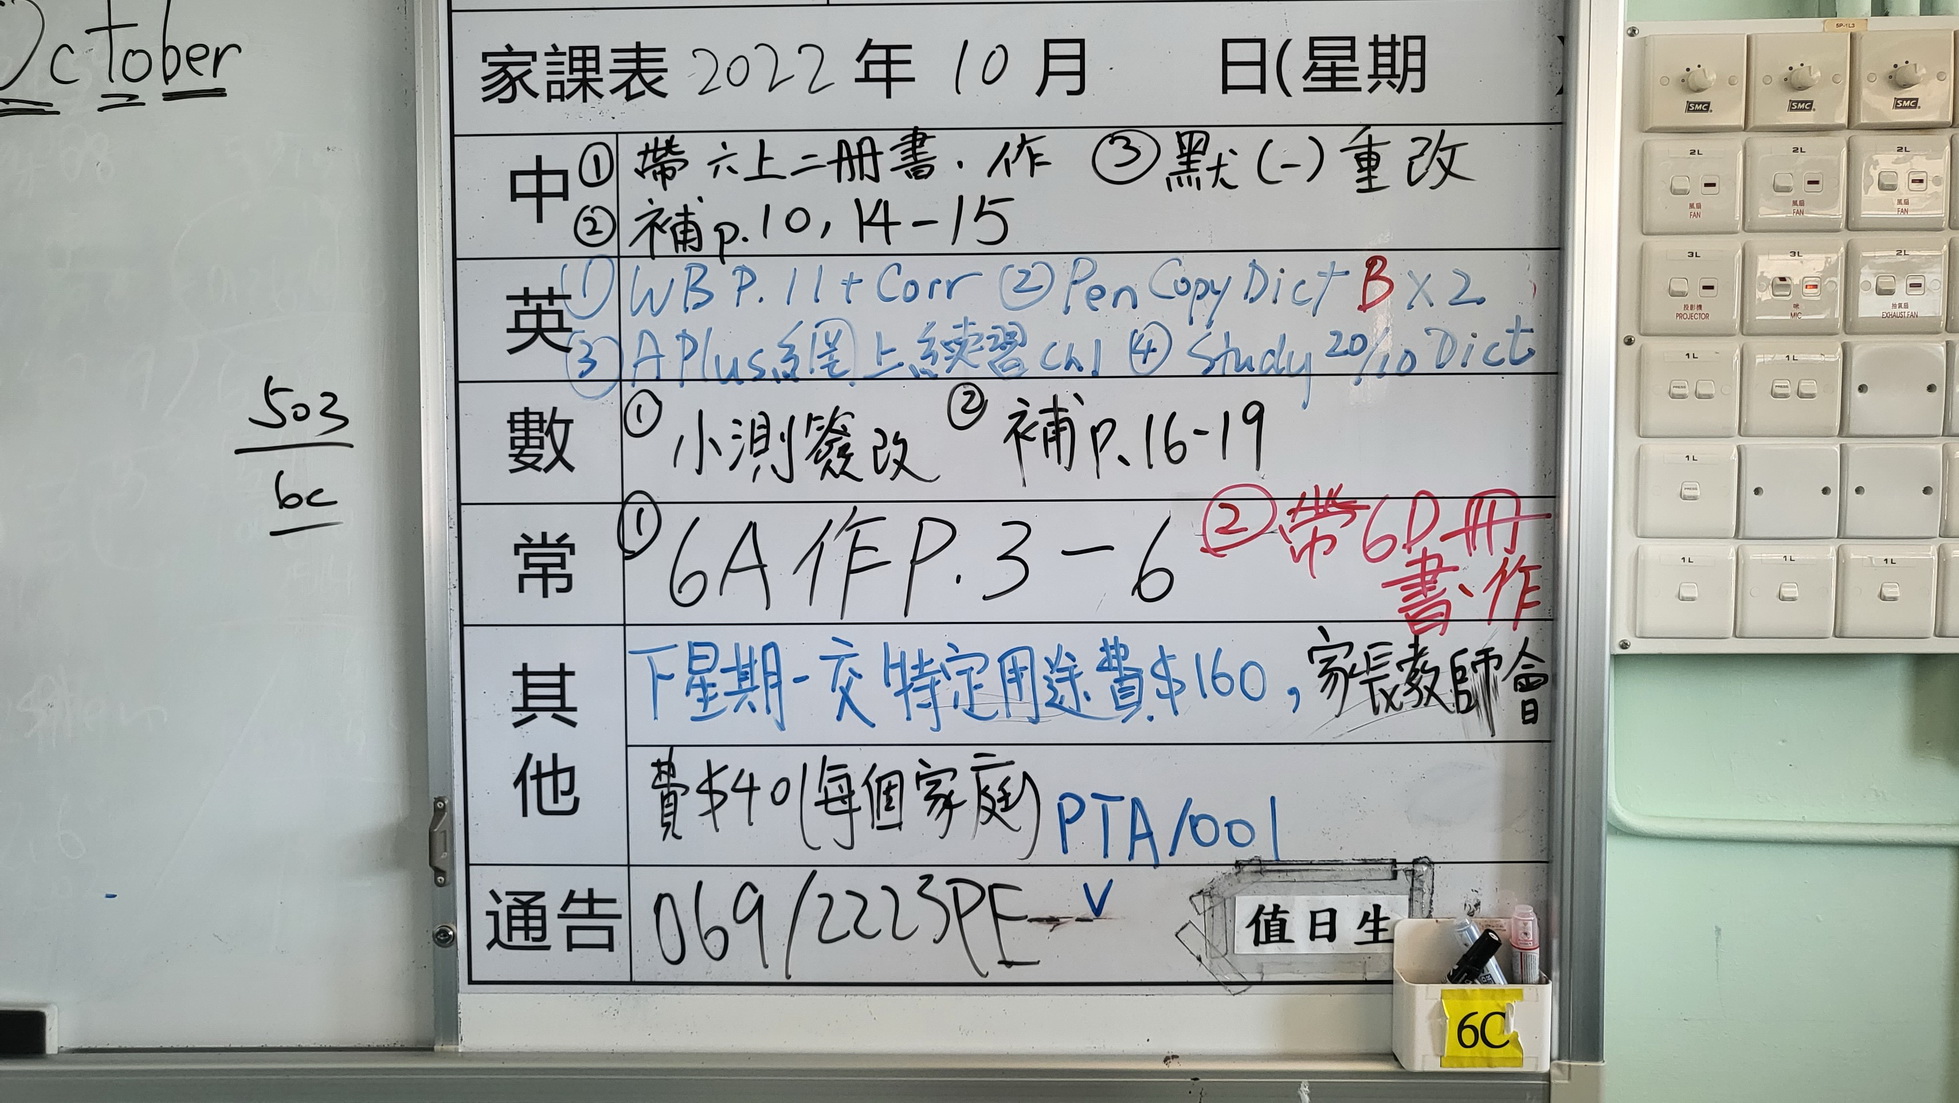 October
503
6c
家課表 2022 年 10 月 日(星期
中 ① 帶六上二冊書.作 ③ 默(一)重改
② 補p.10, 14-15
英 ① WB P.11 + Corr ② Pen Copy Dict B x 2
③ A Plus 網上練習 Ch.1 ④ Study 20/10 Dict
數 ① 小測簽改 ② 補P.16-19
常 ① 6A 作 P.3-6 ② 帶6D冊
書、作
其他 下星期一交特定用途費$160, 家長教師會
費$40(每個家庭) PTA/001
通告 069/2223PE — v
值日生
6C
SP-1L3
SMC SMC SMC
2L 2L 2L
風扇 FAN 風扇 FAN 風扇 FAN
3L 3L 2L
投影機 PROJECTOR 咪 MIC 抽氣扇 EXHAUST FAN
1L 1L
1L
1L 1L 1L